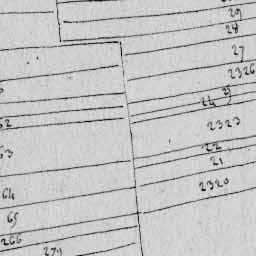 29
28
27
2326
25
24
2323
22
21
2320
62
63
64
65
266